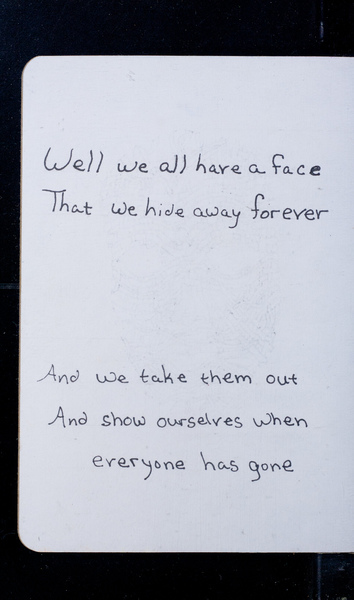 Well we all have a face
That we hide away forever
And we take them out
And show ourselves when
everyone has gone